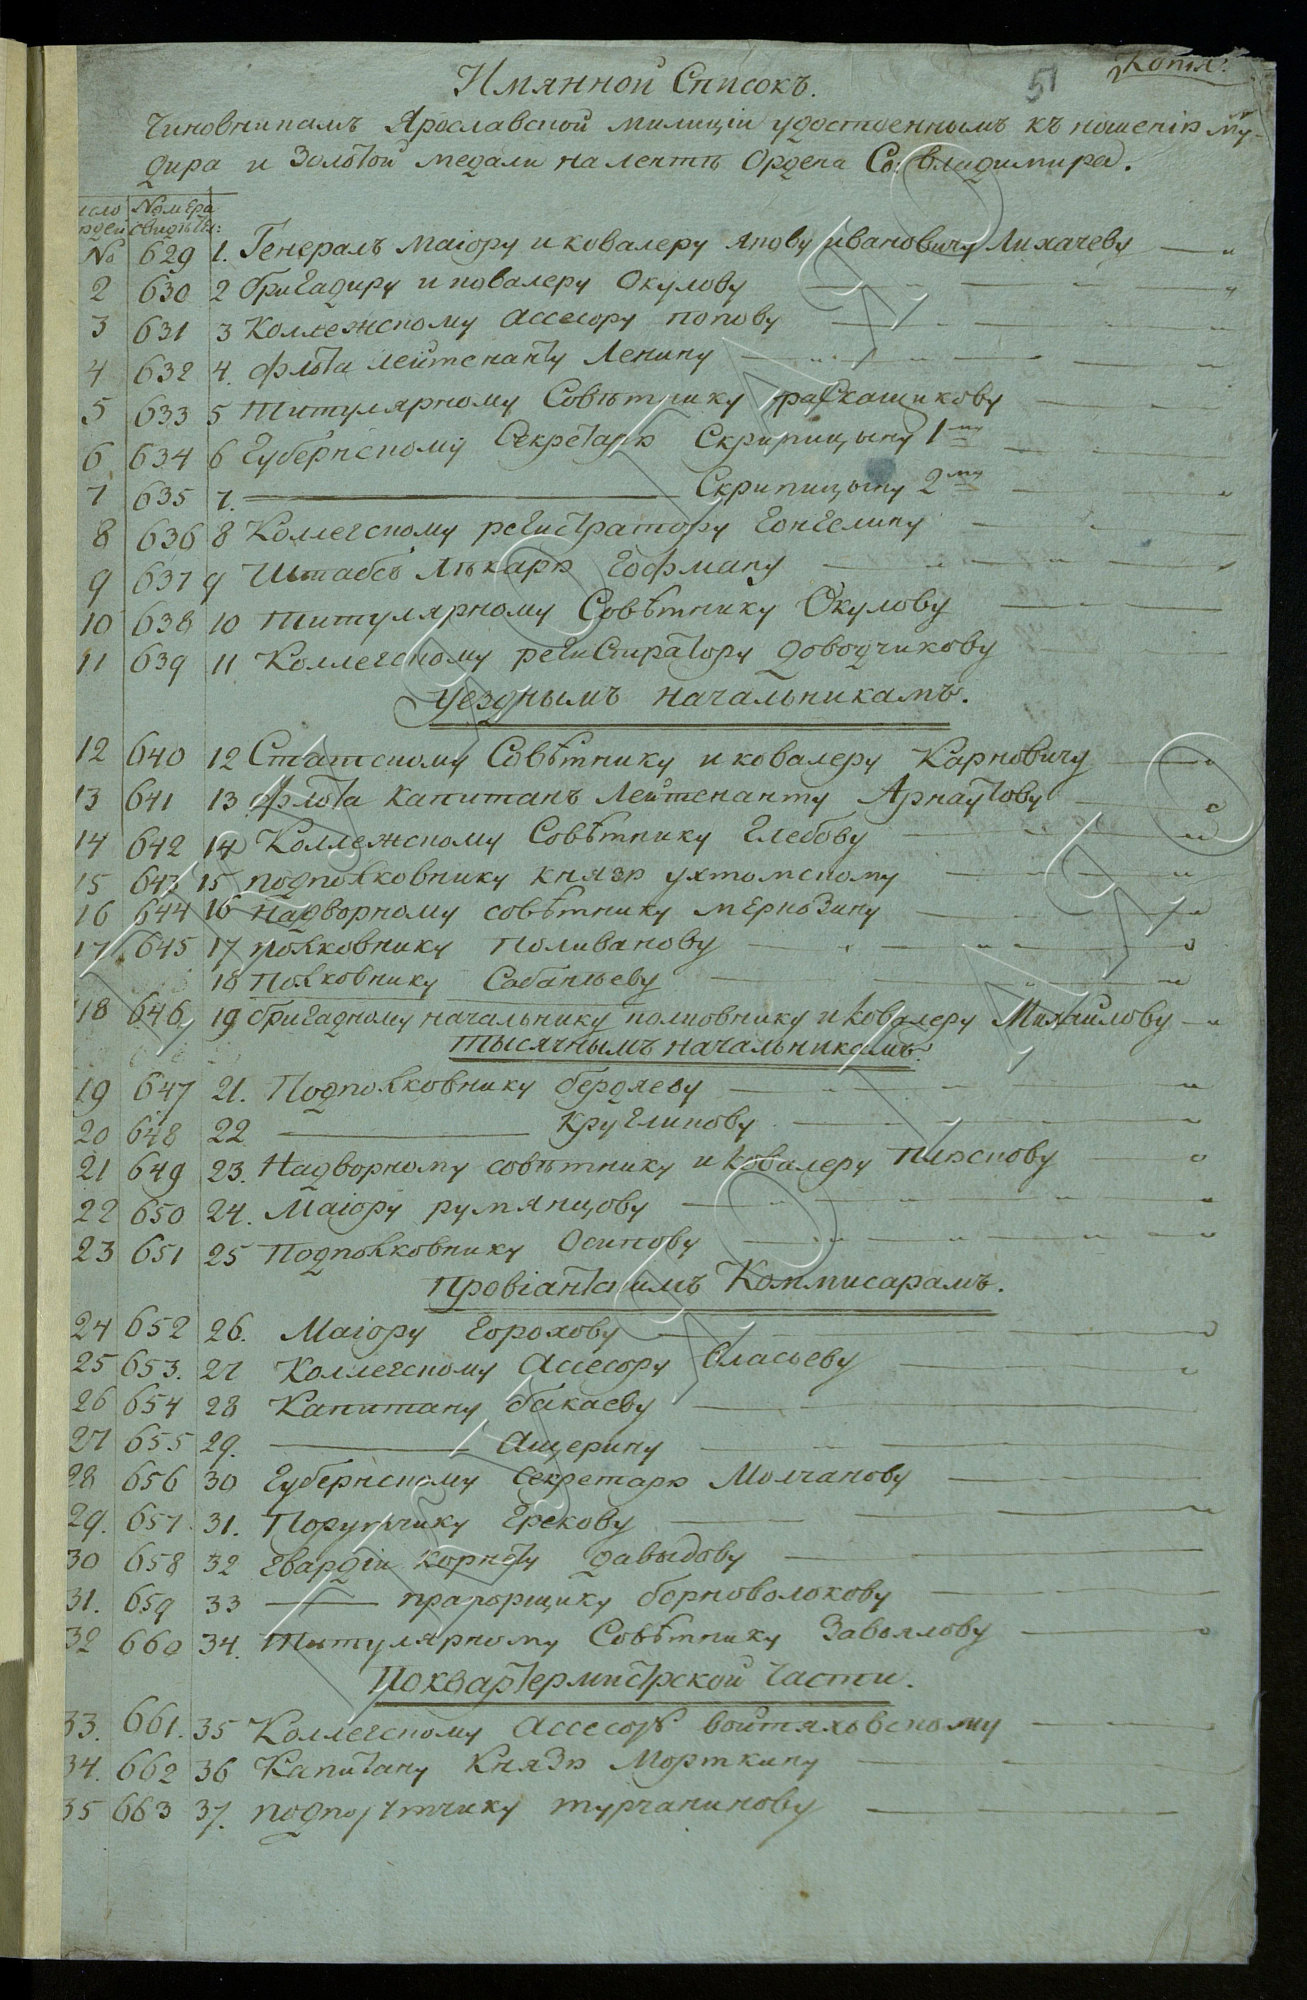 Копія
51
Имянной Списокъ.
Чиновникамъ Ярославской милиціи удостоеннымъ къ ношенію мун-
дира и Золотой медали на лентѣ Ордена Св: Владимира.
число рдей Номера свидѣт:
№ 629 1. Генералъ Маіору и ковалеру Якову Ивановичу Лихачеву
2 630 2 Бригадиру и ковалеру Окулову
3 631 3 Коллежскому Ассесору Попову
4 632 4. Флота Лейтенанту Ленину
5 633 5 Титулярному Совѣтнику Граскащикову
6 634 6 Губернскому Секретарю Скрипицыну 1му
7 635 7. Скрипицыну 2му
8 636 8 Коллегскому регистратору Гонгелину
9 637 9 Штабсъ Лѣкарю Гофману
10 638 10 Титулярному Совѣтнику Окулову
11 639 11 Коллегскому регистратору Доводчикову
Уезднымъ начальникамъ.
12 640 12 Статскому Совѣтнику и ковалеру Карновичу
13 641 13 Флота Капитанъ Лейтенанту Арнаутову
14 642 14 Коллежскому Совѣтнику Глебову
15 643 15 подполковнику князю ухтомскому
16 644 16 надворному совѣтнику Мерновину
17 645 17 полковнику Поливанову
18 Полковнику Сабанѣеву
18 646 19 бригадному начальнику полковнику и ковалеру Михайлову
Тысячнымъ начальникамъ.
19 647 21. Подполковнику Бердяеву
20 648 22 Кругликову
21 649 23. Надворному совѣтнику и ковалеру
22 650 24. Маіору румянцову
23 651 25 Подполковнику Осипову
Провіантскимъ Коммисарамъ.
24 652 26. Маіору Горохову
25 653. 27 Коллегскому Ассесору Власьеву
26 654 28 Капитану Бакаеву
27 655 29. Ащерину
28 656 30 Губернскому секретарю Молчанову
29. 657 31. Порутчику Грекову
30 658 32 Гвардіи Корнету Давыдову
31. 659 33 прапорщику Борноволокову
32 660 34. Титулярному Совѣтнику Завьялову
По квартермистрской части.
33. 661. 35 Коллегскому Ассесору Войтяховскому
34. 662 36 Капитану Князю Морткину
35 663 37. подпорутчику турчанинову